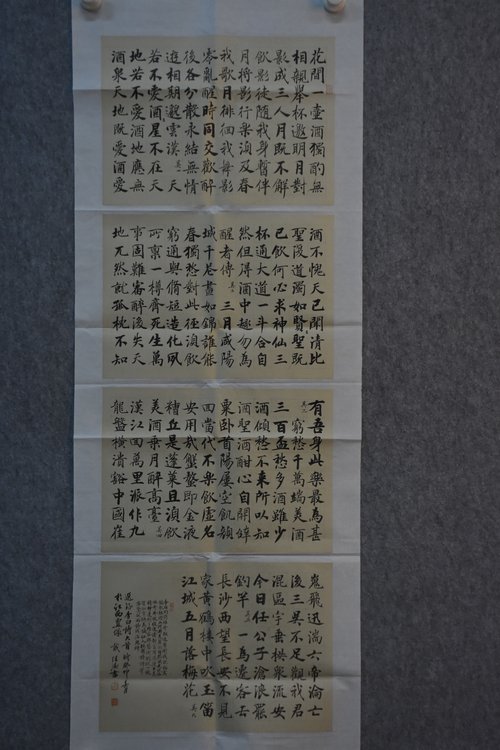 花間一壺酒獨酌無
相親舉杯邀明月對
影成三人月既不解
飲影徒隨我身暫伴
月將影行樂須及春
我歌月徘徊我舞影
零亂醒時同交歡醉
後各分散永結無情
遊相期邈雲漢 其一 天
若不愛酒星不在天
地若不愛酒地應無
酒泉天地既愛酒愛
酒不愧天已聞清比
聖復道濁如賢聖既
已飲何必求神仙三
杯通大道一斗合自
然但得酒中趣勿為
醒者傳 其二 三月咸陽
城千花晝如錦誰能
春獨愁對此徑須飲
窮通與脩短造化夙
所稟一樽齊死生萬
事固難審醉後失天
地兀然就孤枕不知
有吾身此樂最為甚
其三 窮愁千萬端美酒
三百盃愁多酒雖少
酒傾愁不來所以知
酒聖酒酣心自開辭
粟臥首陽屢空飢顏
回當代不樂飲虛名
安用哉蟹螯即金液
糟丘是蓬萊且須飲
美酒乘月醉高臺 其四
漢江回萬里派作九
龍盤橫潰豁中國崔
嵬飛迅湍六帝淪亡
後三吳不足觀我君
混區宇垂拱衆流安
今日任公子滄浪罷
釣竿 一為遷客去
長沙西望長安不見
家黃鶴樓中吹玉笛
江城五月落梅花
李白詩六首 時癸卯
於江西豐城